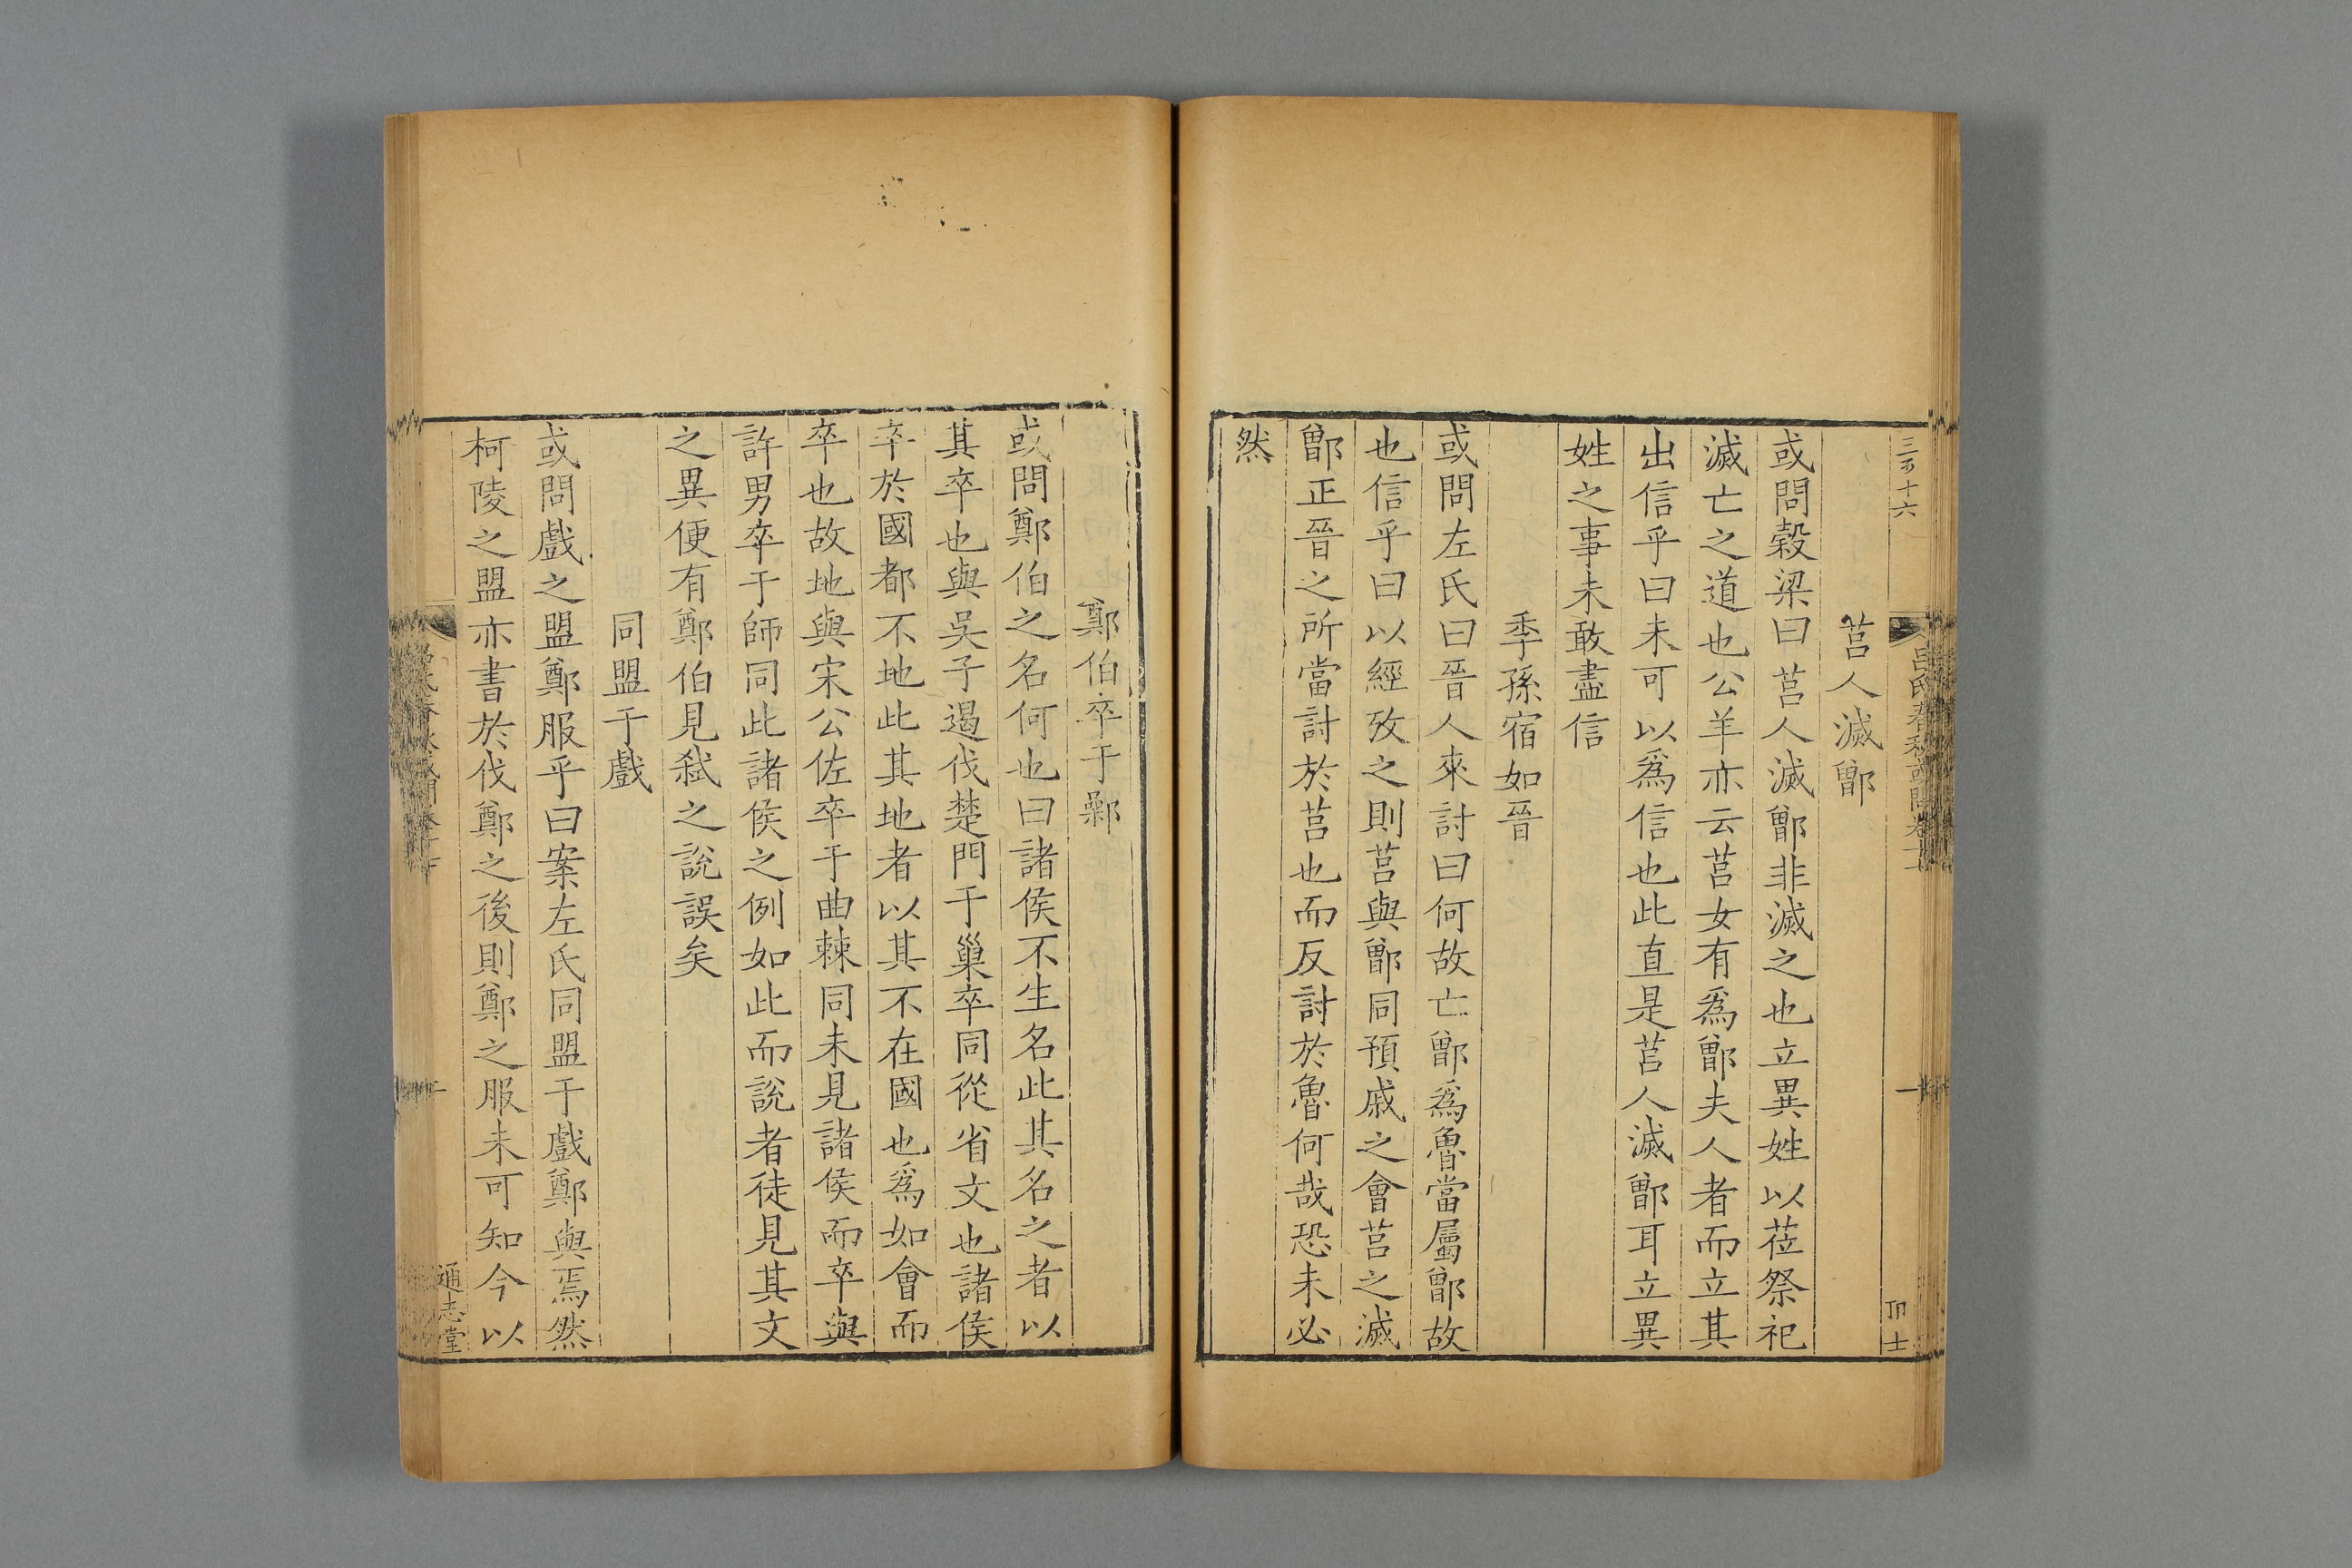 三百十六
呂氏春秋或問卷十
一
莒人滅鄫
或問榖梁曰莒人滅鄫非滅之也立異姓以莅祭祀
滅亡之道也公羊亦云莒女有爲鄫夫人者而立其
出信乎曰未可以爲信也此直是莒人滅鄫耳立異
姓之事未敢盡信
季孫宿如晉
或問左氏曰晉人來討曰何故亡鄫爲魯當屬鄫故
也信乎曰以經攷之則莒與鄫同預戚之會莒之滅
鄫正晉之所當討於莒也而反討於魯何哉恐未必
然
鄭伯卒于鄵
或問鄭伯之名何也曰諸侯不生名此其名之者以
其卒也與吳子遏伐楚門于巢卒同從省文也諸侯
卒於國都不地此其地者以其不在國也爲如會而
卒也故地與宋公佐卒于曲棘同未見諸侯而卒與
許男卒于師同此諸侯之例如此而說者徒見其文
之異便有鄭伯見弑之說誤矣
同盟于戲
或問戲之盟鄭服乎曰案左氏同盟于戲鄭與焉然
柯陵之盟亦書於伐鄭之後則鄭之服未可知今以
通志堂